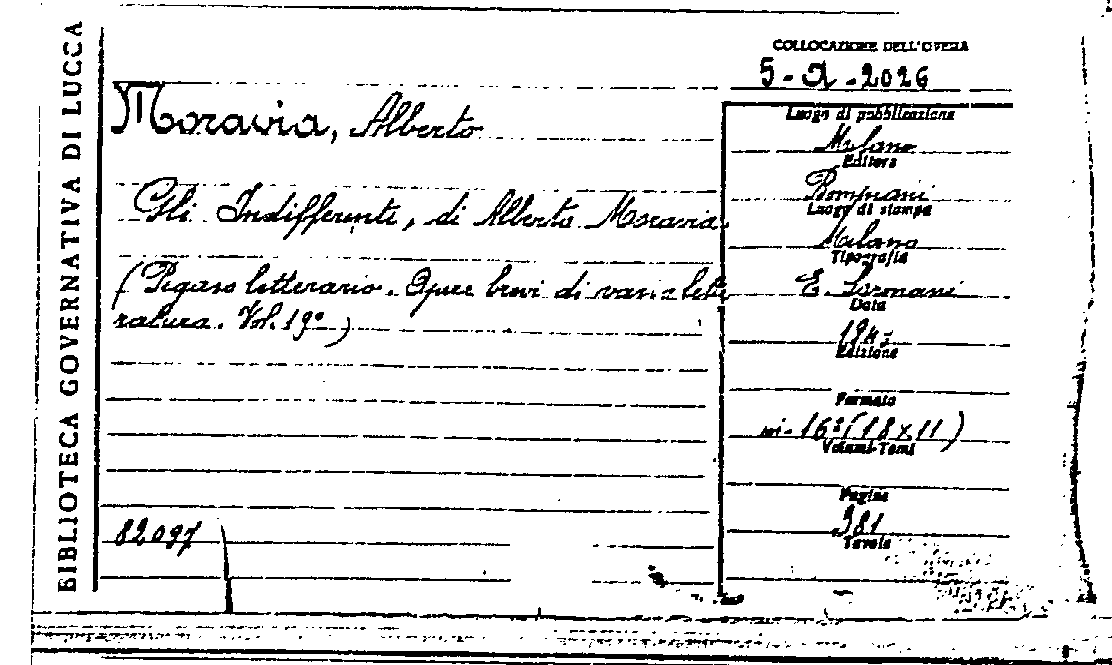 BIBLIOTECA GOVERNATIVA DI LUCCA
COLLOCAZIONE DELL'OPERA
5-2-2026
Moravia, Alberto
Gli Indifferenti, di Alberto Moravia.
(Pegaso letterario. Opere brevi di varia lette
ratura. Vol. 19°)
82097
Luogo di pubblicazione
Milano
Editore
Bompiani
Luogo di stampa
Milano
Tipografia
E.
Data
1945
Edizione
Formato
in-16°(18x11)
Volumi-Tomi
Pagine
381
Tavole